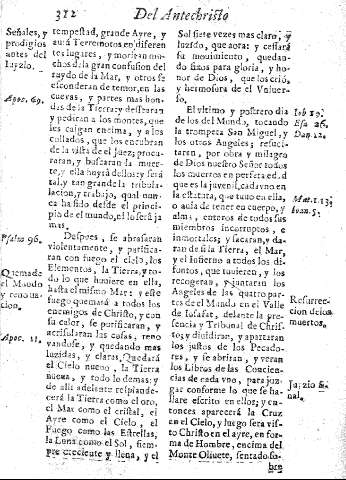 312 Del Antechristo
Señales, y
prodigios
antes del
juyzio.
Apoc. 69.
Psalm 96.
Quemade
el Mundo
y renoua-
cion.
Apoc. 21.
tempestad, grande Ayre, y
aurà Terremotos en diferen
tes lugares, y moriran mu-
chos de la gran confusion del
raydo de la Mar, y otros se
esconderan de temor, en las
cueuas, y partes mas hon-
das de la Tierra; y dessearan
y pediran a los montes, que
les caigan encima, y a los
collados, que los encubran
de la vista de el Juez; procu-
raran, y buscaran la muer-
te, y ella huyrà dellos; y serà
tal, y tan grande la tribula-
cion, y trabajo, qual nun-
ca ha sido desde el princi-
pio de el mundo, ni lo serà ja
mas.
Despues, se abrasaràn
violentamente, y purifica-
ran con fuego el cielo, los
Elementos, la Tierra, y to-
do lo que huuiere en ella,
hasta el mismo Mar: y este
fuego quemarà a todos los
enemigos de Christo, y con
su calor, se purificaran, y
acrisolaran las cosas, reno
vandose, y quedando mas
luzidas, y claras. Quedarà
el Cielo nueuo, la Tierra
nueua, y todo lo demas: y
de alli adelante resplande-
cerà la Tierra como el oro,
el Mar como el cristal, el
Ayre como el Cielo, el
Fuego como las Estrellas,
la Luna como el Sol, siem-
pre creciente y llena, y el
Sol siete vezes mas claro, y
luzido, que aora: y cessarà
su mouimiento, quedan-
do fixos para gloria, y ho-
nor de Dios, que los criò,
y hermosura de el Vniuer-
so.
El vltimo y postrero dia
de los del Mundo, tocando
la trompeta San Miguel, y
los otros Angeles; resuci-
taran, por obra y milagro
de Dios nuestro Señor todos
los muertos en perfeta ed.
que es la juuenil, cada vno en
la estatura, que tuuo en ella,
o auia de tener en cuerpo, y
alma, enteros de todos sus
miembros incorruptos, e
inmortales; y sacaran, y da-
ran de si la Tierra, el Mar,
y el Infierno a todos los di-
funtos, que tuuieren, y los
recogeran, y juntaran los
Angeles de las quatro par-
tes de el Mundo en el Valle
de Iosafat, delante la pre-
sencia y Tribunal de Chris-
to; y diuidiran, y apartaran
los justos de los Pecado-
res, y se abriran, y veran
los Libros de las Concien-
cias de cada vno, para juz-
gar conforme lo que se ha-
llare escrito en ellos; y en-
tonces aparecerà la Cruz
en el Cielo, y luego serà vis-
to Christo en el ayre, en for-
ma de Hombre, encima del
Monte Oliuete, sentado so-
bre
Iob 19.
Esa 26.
Dan. 12.
Resurrec-
cion de los
muertos.
Juyzio fi-
nal.